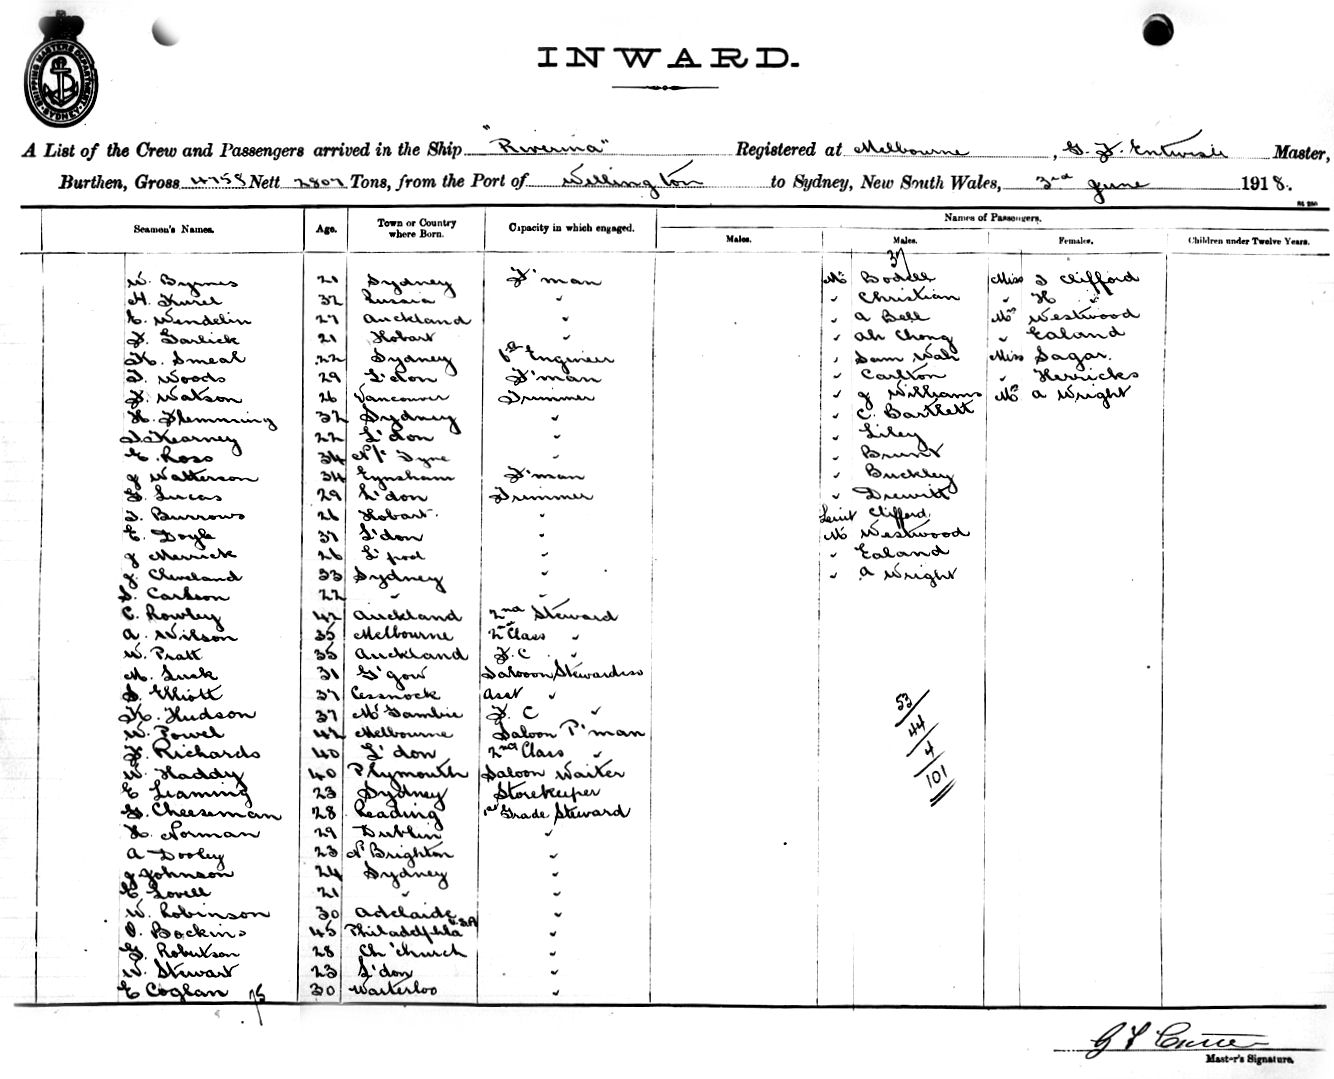 SHIPPING MASTERS DEPARTMENT SYDNEY
INWARD.
A List of the Crew and Passengers arrived in the Ship "Riverina" Registered at Melbourne, G. F. Entwisle Master,
Burthen, Gross 4758 Nett 2807 Tons, from the Port of Wellington to Sydney, New South Wales, 3rd June 1918.
Names of Passengers.
Seamen's Names. Age. Town or Country where Born. Capacity in which engaged. Males. Males. Females. Children under Twelve Years.
37
W. Byrnes 21 Sydney F'man Mr Bodell Miss I Clifford
H. Kurel 32 Russia " " Christian " H "
E. Wendelin 27 Auckland " " A Bell Mrs Westwood
F. Garlick 21 Hobart " " Ah Chong " Ealand
K. Smeal 22 Sydney Engineer " Sam Wah Miss Sagar.
T. Woods 29 L'don F'man " Carlton " Herricks
F. Watson 26 Vancouver Trimmer " J Williams Mrs A Wright
H. Flemming 32 Sydney " " C. Bartlett
Kearney 22 L'don " " Liley
E. Ross 34 N/c Tyne " " Brunt
J Watterson 34 Eynsham F'man " Buckley
G. Lucas 29 L'don Trimmer " Drewitt
T. Burrows 26 Hobart. " Lieut Clifford.
E. Doyle 37 L'don " Mr Westwood
J Merrick 26 L'pool " " Ealand
J. Cleveland 33 Sydney " " A Wright
S. Carlson 22 " "
C. Rowley 42 Auckland 2nd Steward
A. Wilson 35 Melbourne 2nd Class "
W. Pratt 35 Auckland F. C. "
M. Lusk 31 G'gow Saloon Stewardess
S. Elliott 37 Cessnock Asst " 53
K. Hudson 37 Mt Gambier F. C " 44
W. Powel 42 Melbourne Saloon P'man 4
F. Richards 40 L'don 2nd Class " 101
W. Haddy 40 Plymouth Saloon Waiter
E Leaming 23 Sydney Storekeeper
G. Cheeseman 28 Reading 1st Grade Steward
H. Norman 29 Dublin "
A Dooley 23 N Brighton "
J Johnson 24 Sydney "
E Lovell 21 " "
W. Robinson 30 Adelaide "
O. Bockins 45 Philadelphia U.S.A "
G. Robertson 28 Ch'church "
W. Stewart 23 L'don "
E Coglan 30 Waterloo "
75
Master's Signature.